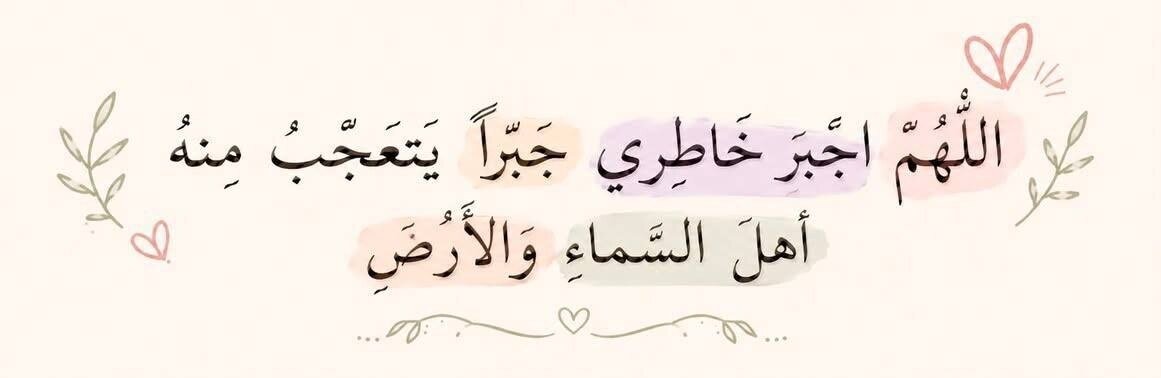 اللُّهُمّ اجَّبَرَ خَاطِري جَبّراً يَتعَجّبُ مِنهُ
أهلَ السَّماءِ وَالأَرُضَِ